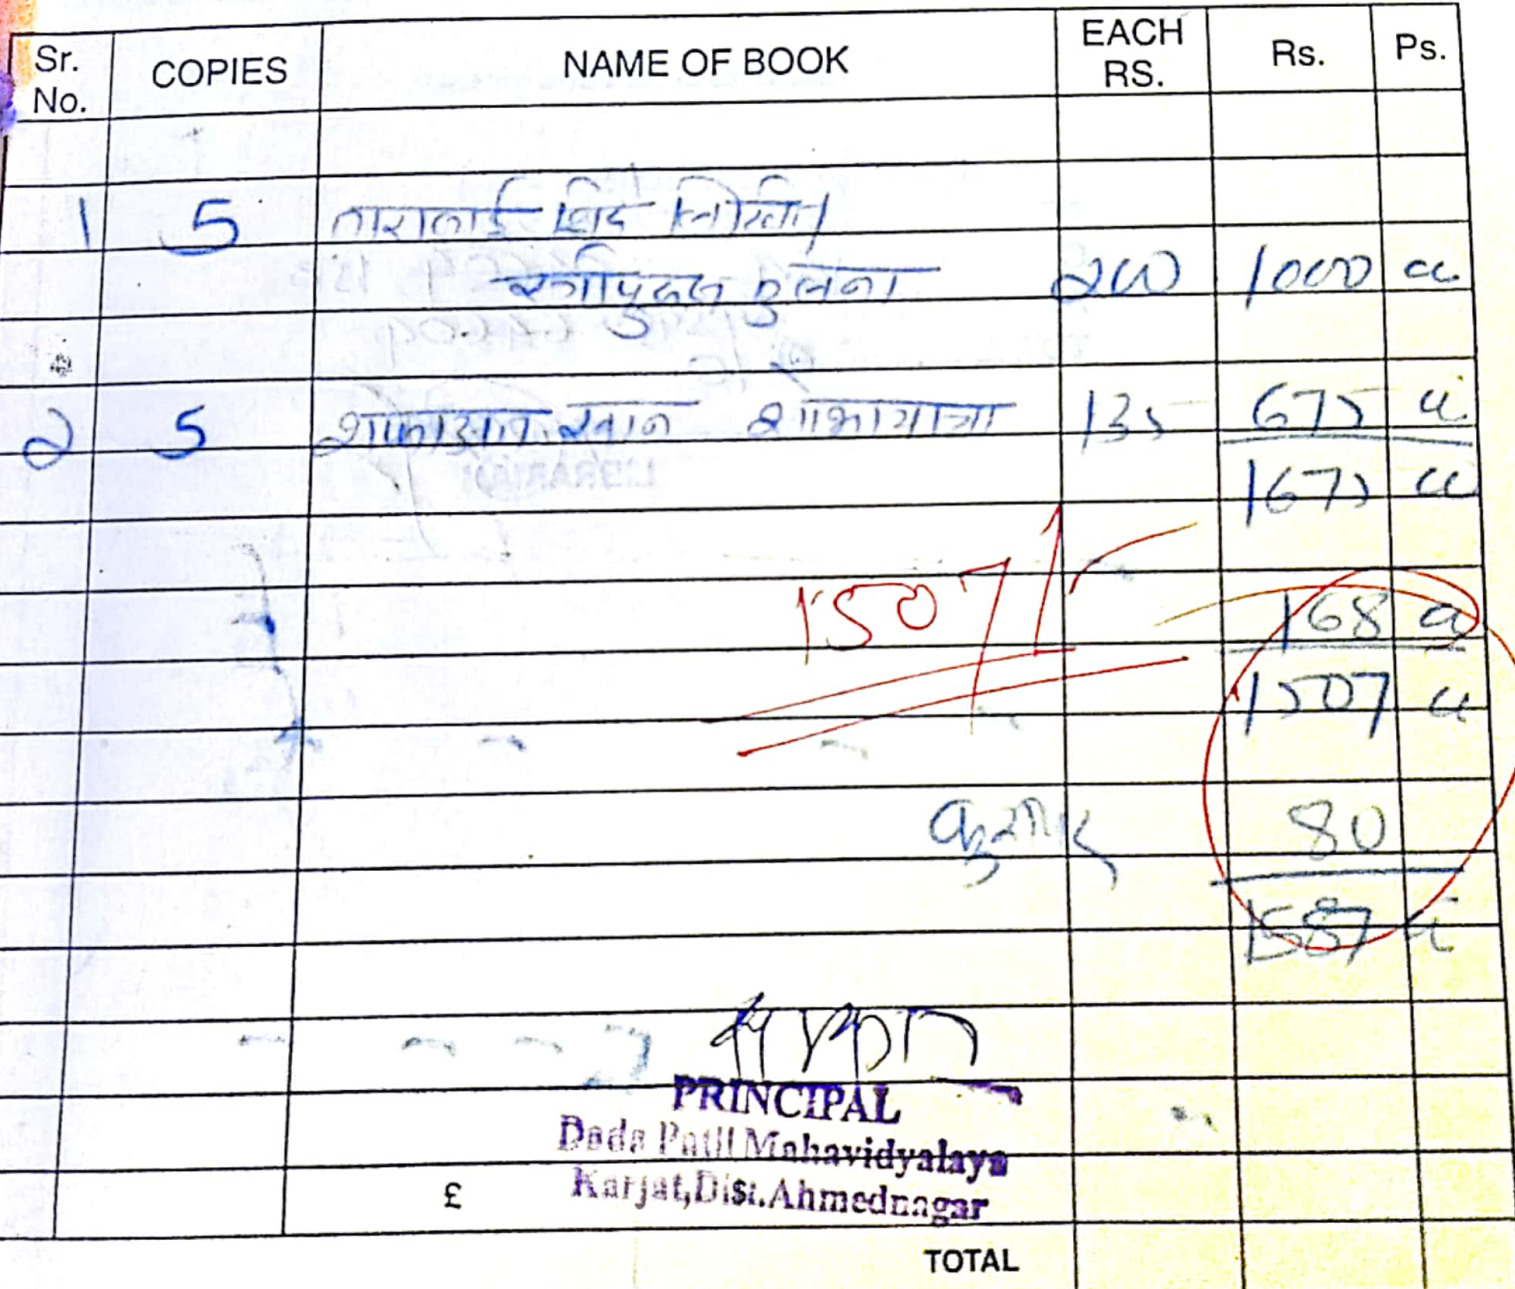 Sr. No. COPIES NAME OF BOOK EACH RS. Rs. Ps.
1 5 ताराबाई शिंदे लिखित
स्त्रीपुरुष तुलना 200 1000 00
2 5 शफाअत खान शोभायात्रा 135 675 00
1675 00
1507/-
168 00
1507 00
कुरीअर 80
1587 00
PRINCIPAL
Dada Patil Mahavidyalaya
Karjat,Dist.Ahmednagar
£
TOTAL